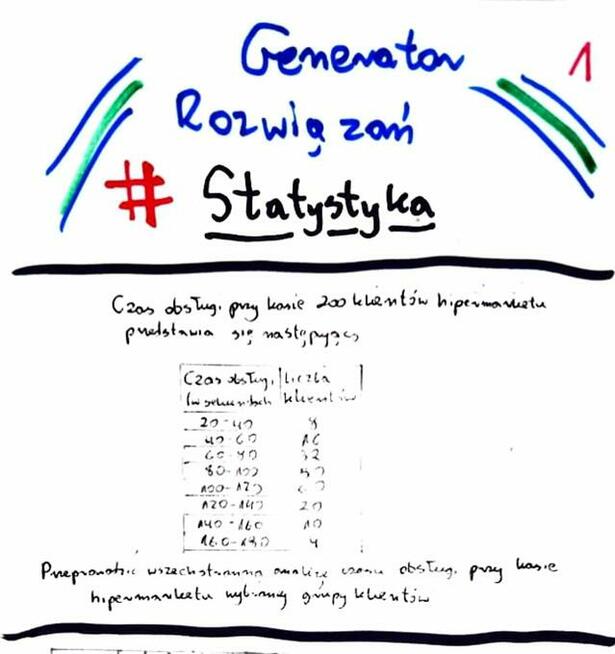 Generator
1
Rozwiązań
# Statystyka
Czas obsługi przy kasie 200 klientów hipermarketu
przedstawia się następująco
Czas obsługi Liczba
(w sekundach klientów
20-40 8
40-60 16
60-80 32
80-100 50
100-120
120-140 20
140-160 10
160-180 4
Przeprowadzić wszechstronną analizę czasu obsługi przy kasie
hipermarketu wybranej grupy klientów